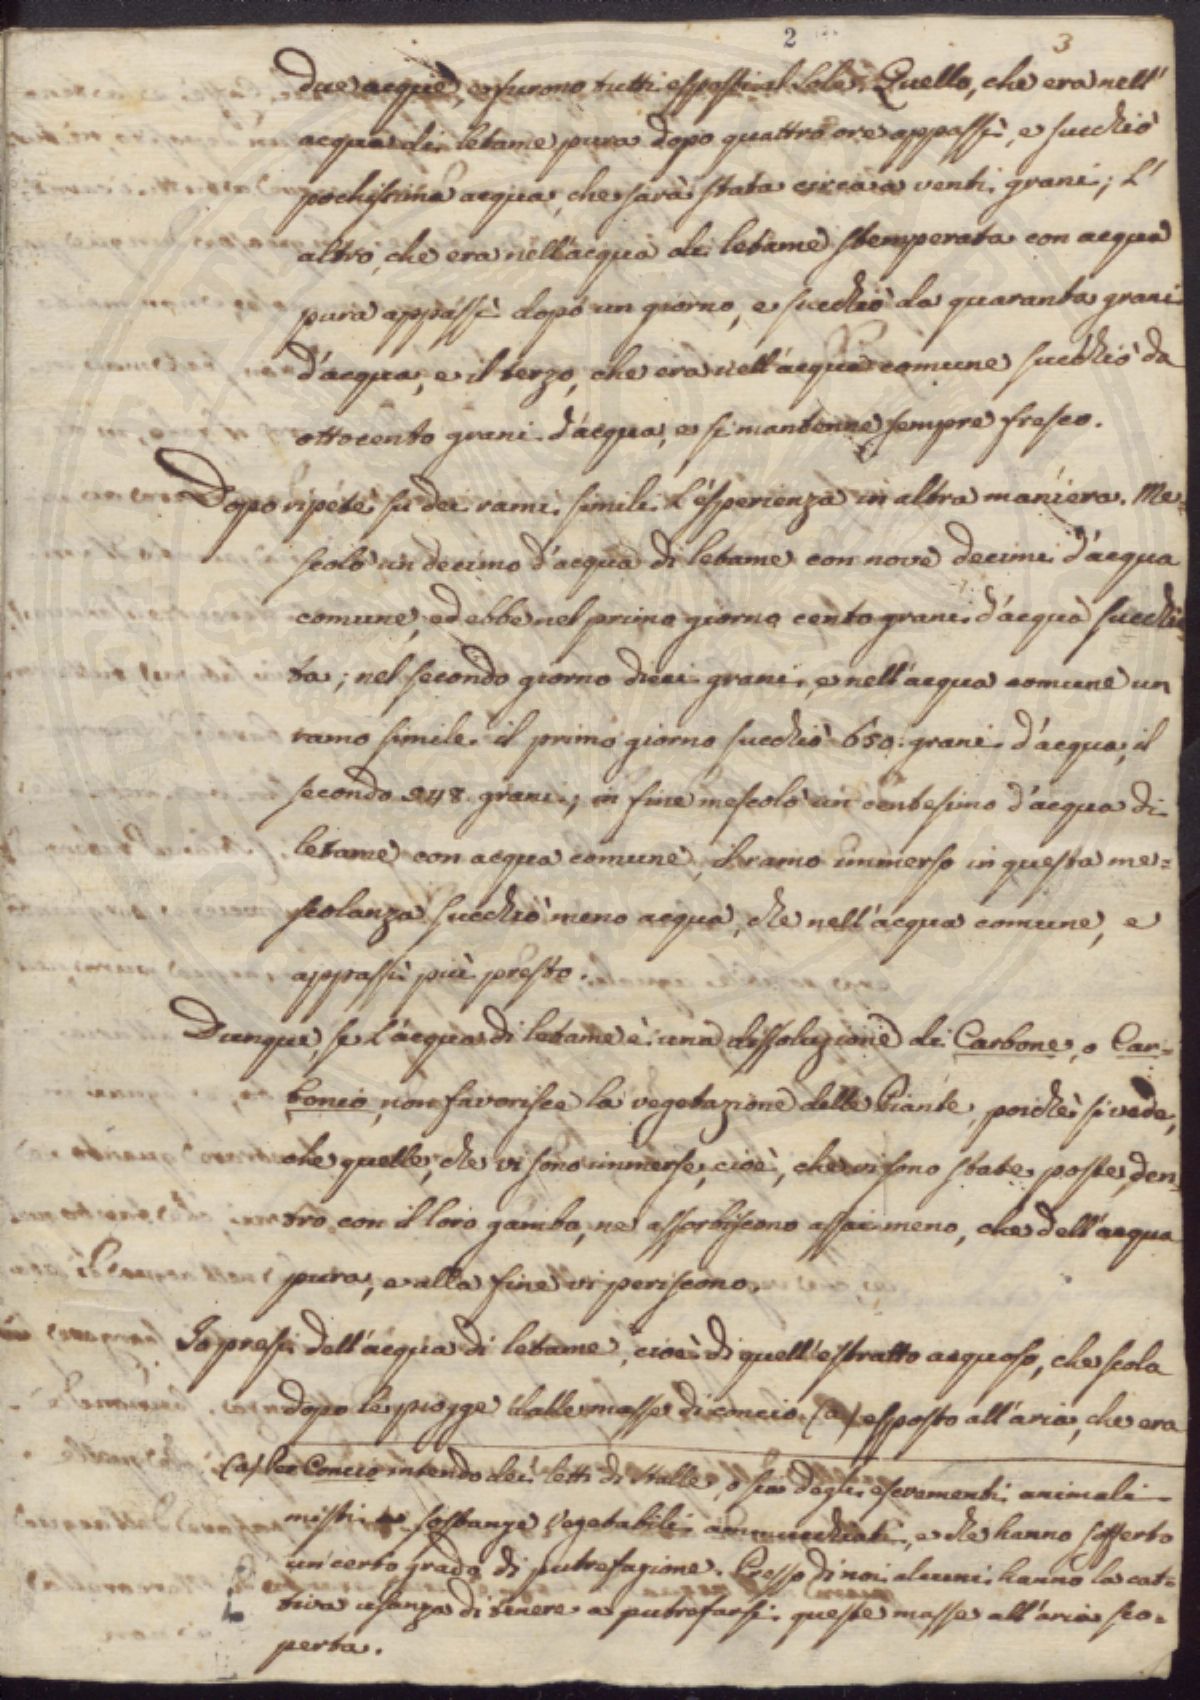 2
3
due acque, e furono tutti esposti al Sole. Quello, che era nell'
acqua di letame pura dopo quattro ore appassì, e succhiò
pochissima acqua, che sarà stata circa a venti grani; L'
altro, che era nell'acqua di letame stemperata con acqua
pura appassì dopo un giorno, e succhiò da quaranta grani
d'acqua, e il terzo, che era nell'acqua comune succhiò da
ottocento grani d'acqua, e si mantenne sempre fresco.
Dopo ripetè su dei rami simili L'esperienza in altra maniera. Me-
scolò un decimo d'acqua di letame con nove decimi d'acqua
comune, ed ebbe nel primo giorno cento grani d'acqua succhia-
ta; nel secondo giorno dieci grani, e nell'acqua comune un
ramo simile il primo giorno succhiò 650. grani d'acqua, il
secondo 948. grani; in fine mescolò un centesimo d'acqua di
letame con acqua comune, il ramo immerso in questa me=
scolanza succhiò meno acqua, che nell'acqua comune, e
appassì più presto.
Dunque, se L'acqua di letame è una dissoluzione di Carbone, o Car-
bonio, non favorisce la vegetazione delle Piante, poichè si vede,
che quelle, che vi sono immerse, cioè, che vi sono state poste den-
tro con il loro gambo, ne assorbiscono assai meno, che dell'acqua
pura, e alla fine vi periscono.
Io presi dell'acqua di letame, cioè di quell'estratto acquoso, che scola
dopo le piogge dalle masse di concio (a) esposto all'aria, che era
(a) Per Concio intendo dei letti di stalle, o sia degli escrementi animali
misti a sostanze vegetabili ammucchiati, e che hanno sofferto
un certo grado di putrefazione. Presso di noi alcuni hanno la cat=
tiva usanza di tenere a putrefarsi queste masse all'aria sco=
perta.